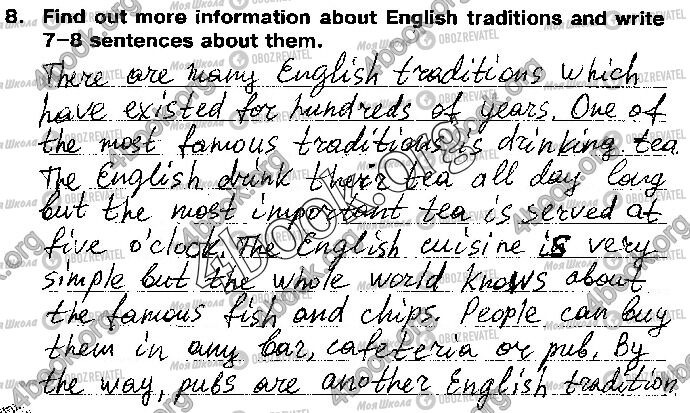 8. Find out more information about English traditions and write
7–8 sentences about them.
There are many English traditions which
have existed for hundreds of years. One of
the most famous traditions is drinking tea.
The English drink their tea all day long
but the most important tea is served at
five o'clock. The English cuisine is very
simple but the whole world knows about
the famous fish and chips. People can buy
them in any bar, cafeteria or pub. By
the way, pubs are another English tradition
4book.org
Моя Школа
OBOZREVATEL